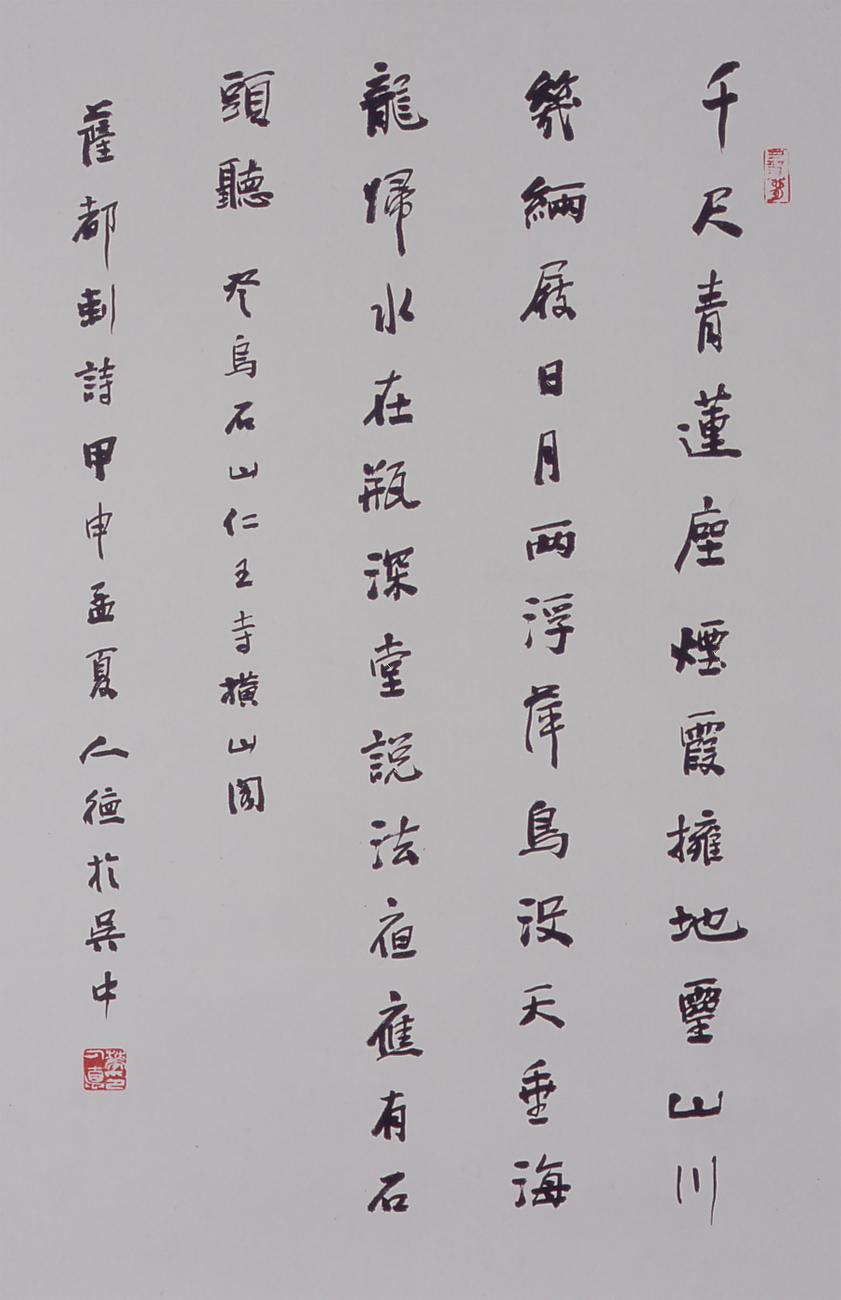 千尺青蓮座煙霞擁地靈山川
幾緉屐日月兩浮萍鳥沒天垂海
龍歸水在瓶深堂說法夜應有石
頭聽 登烏石山仁王寺橫山閣
薩都剌詩甲申孟夏人德於吳中